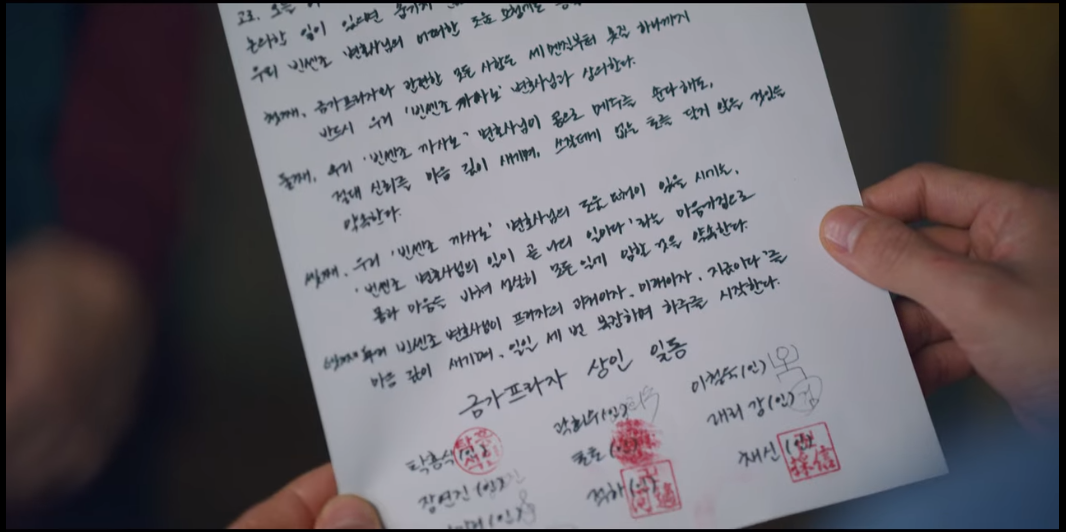 논의할 일이 있다면
우리 빈센조 변호사님의 어떠한 도움 요청에도
첫째, 금가프라자와 관련한 모든 사항은 세면지부터 휴지 하나까지
반드시 우리 '빈센조 까사노' 변호사님과 상의한다.
둘째, 우리 '빈센조 까사노' 변호사님이 콩으로 메주를 쑨다 해도,
절대 신뢰를 마음 깊이 새기며, 쓰잘데기 없는 토를 달지 않을 것임을
약속한다.
셋째, 우리 '빈센조 까사노' 변호사님의 도움 요청이 있을 시기는,
'빈센조 변호사님의 일이 곧 나의 일이다'라는 마음가짐으로
몸과 마음을 바쳐 성실히 모든 일에 임할 것을 약속한다.
빈센조 변호사님이 프라자의 과거이자, 미래이자, 지금이다'를
마음 깊이 새기며, 일일 세 번 복창하며 하루를 시작한다.
금가프라자 상인 일동
탁홍식(인) 곽희수(인) 이철욱(인)
장연진(인) 래리 강(인)
적하(인) 채신(인)
採信